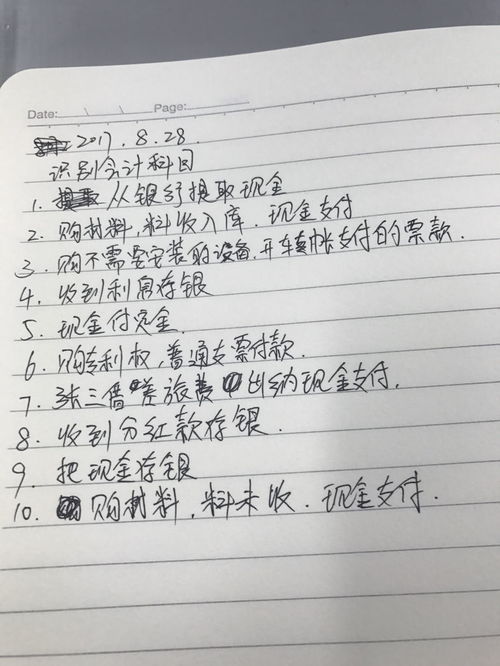 Date: \ \ Page:
2017.8.28.
识别会计科目
1. 从银行提取现金
2. 购材料,料收入库.现金支付
3. 购不需要安装的设备,开转帐支付的票款.
4. 收到利息存银
5. 现金付定金.
6. 购专利权,普通支票付款.
7. 张三借差旅费 出纳现金支付.
8. 收到分红款存银.
9. 把现金存银
10. 购材料,料未收.现金支付.